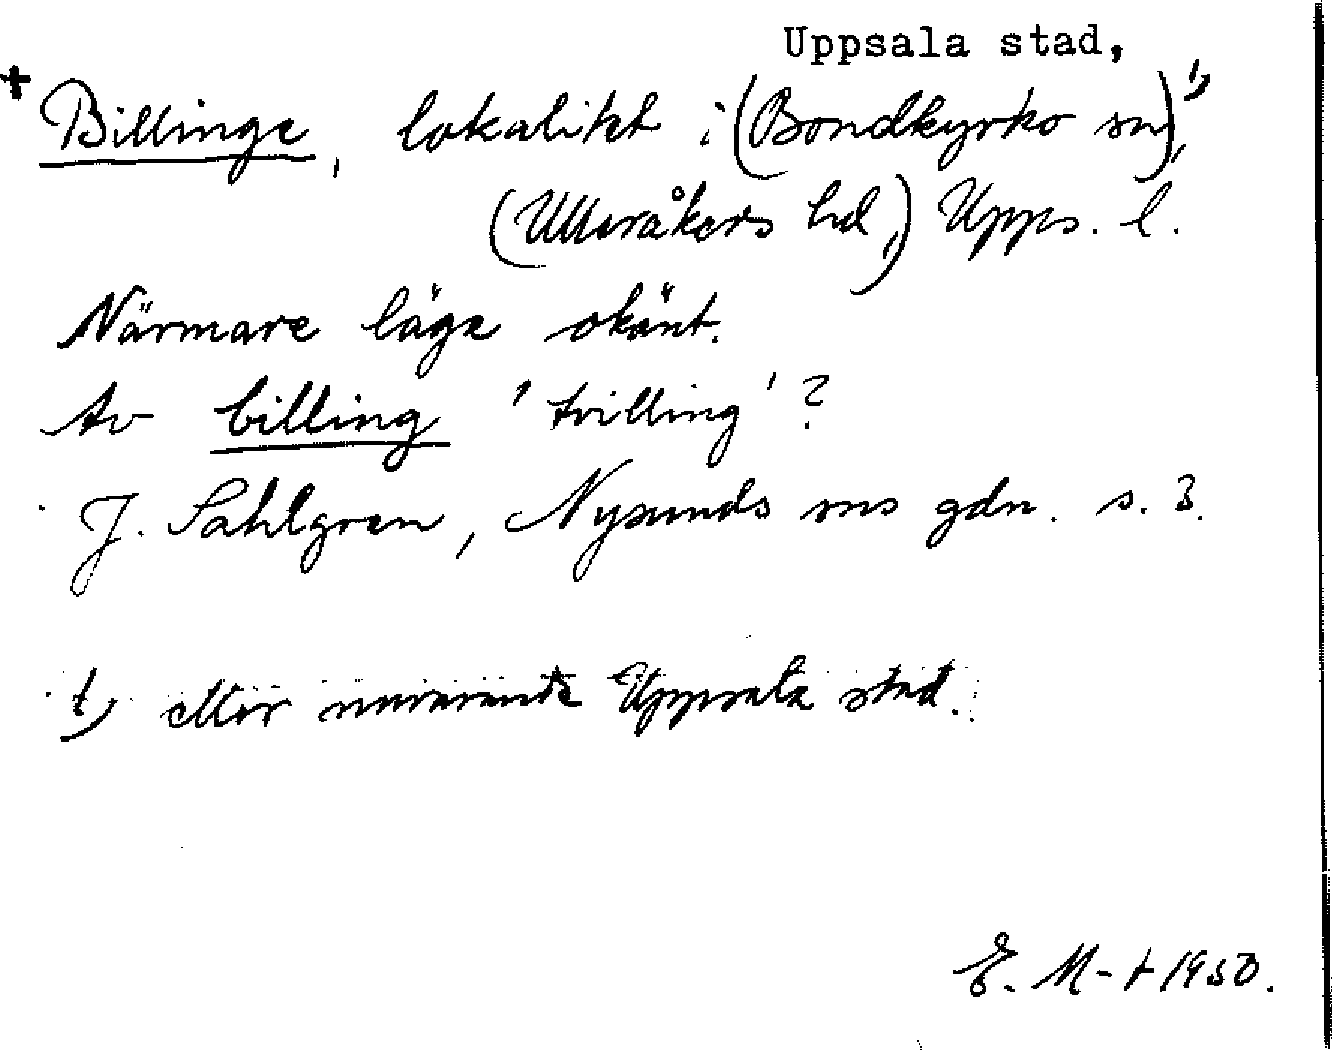 Uppsala stad,
+ Billinge, lokalitet i (Bondkyrko sn),¹⁾
(Ulleråkers hd,) Upps. l.
Närmare läge okänt.
Av billing 'tvilling'?
J. Sahlgren, Nysunds sns gdn. s. 3.
1) eller nuvarande Uppsala stad.
E. M-t 1950.